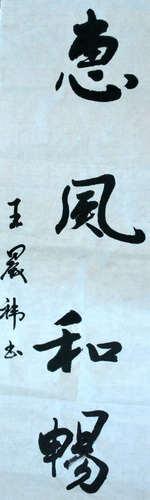 惠風和暢
王晨祎书